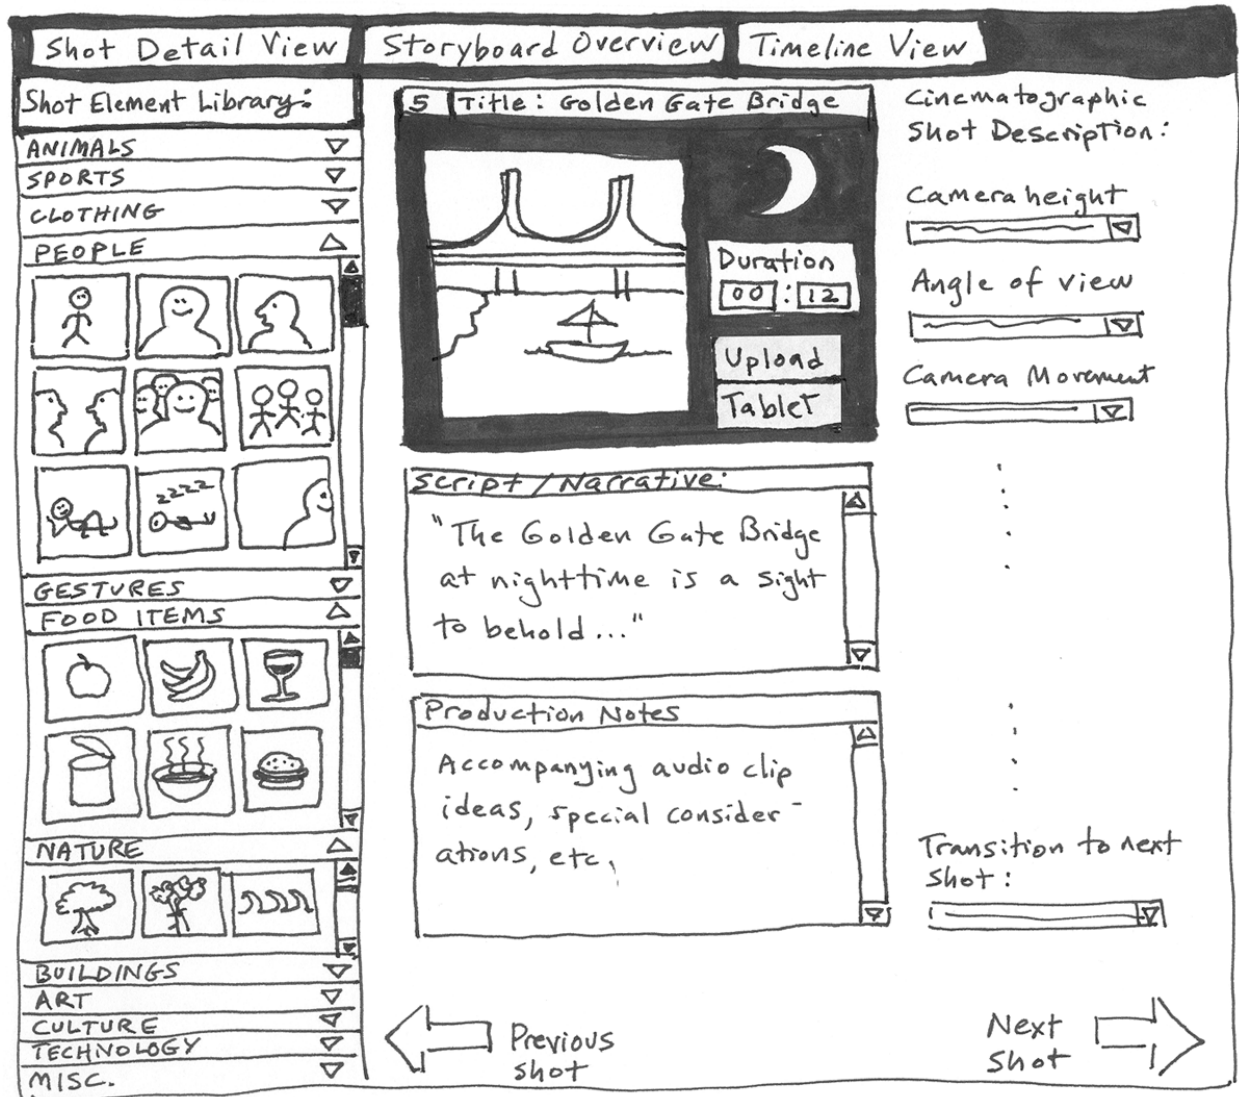 Shot Detail View
Storyboard Overview
Timeline View
Shot Element Library:
ANIMALS
SPORTS
CLOTHING
PEOPLE
zzzz
GESTURES
FOOD ITEMS
NATURE
BUILDINGS
ART
CULTURE
TECHNOLOGY
MISC.
5 Title: Golden Gate Bridge
Duration
00 : 12
Upload
Tablet
Script / Narrative:
"The Golden Gate Bridge
at nighttime is a sight
to behold..."
Production Notes
Accompanying audio clip
ideas, special consider-
ations, etc,
Previous
shot
Cinematographic
Shot Description:
Camera height
Angle of view
Camera Movement
Transition to next
shot:
Next
Shot